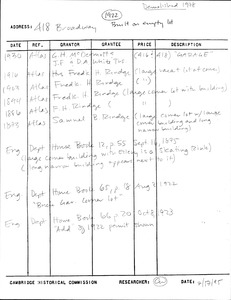 Demolished 1978
(1922)
ADDRESS: 418 Broadway Built on empty lot
DATE REF. GRANTOR GRANTEE PRICE DESCRIPTION
1930 Atlas G.H. McDermott (416 & 418) "GARAGE"
J.F. & D.A. White Trs
1916 Atlas Hrs Fredk. H. Rindge (large vacant lot at corner)
1903 Atlas Fredk. H. Rindge ( " )
1894 Atlas Fredk. H. Rindge (large corner lot with building)
1886 Atlas F.H. Rindge ( " )
1873 Atlas Samuel B. Rindge (large corner lot w/ large corner building and long narrow building)
Eng Dept House Book 12, p 55 Sept 16, 1885
(large corner building with Skating Rink)
(long narrow building appears next to it)
Eng Dept House Book 65, p 18 Aug 1922
"Brick Gar. Corner Lot"
Eng Dept House Book 66, p 20 Oct 8, 1923
Add. by 1922 permit
CAMBRIDGE HISTORICAL COMMISSION RESEARCHER: DATE: